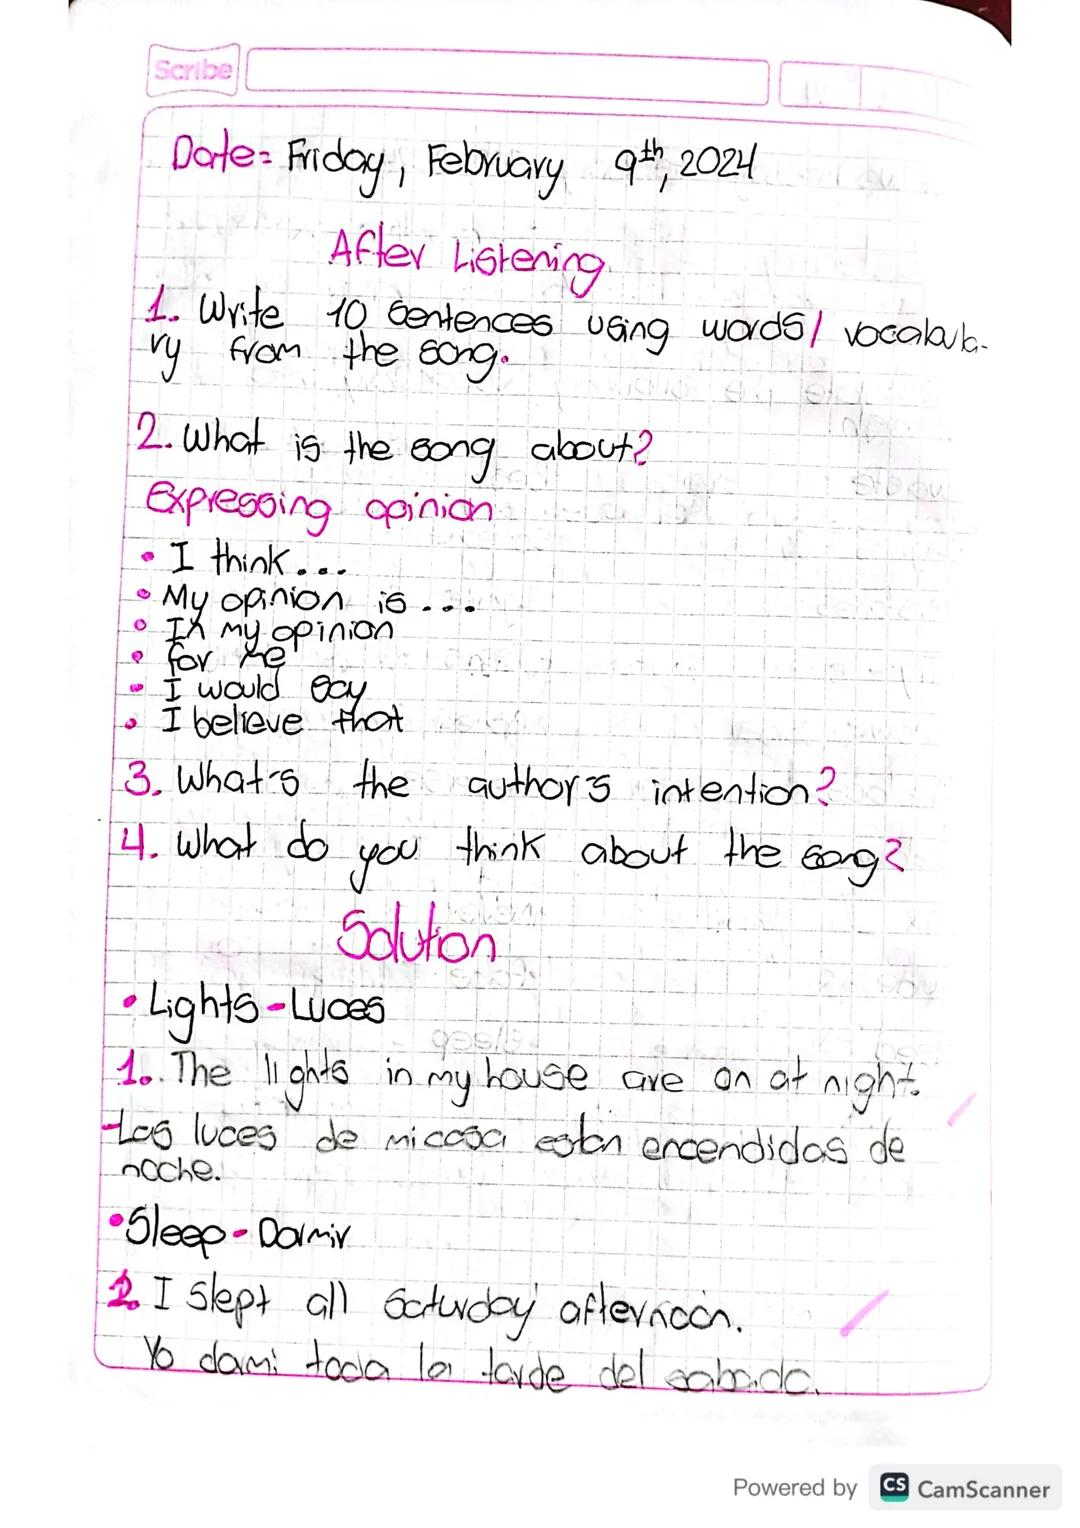 Scribe
Date= Friday, February 9th, 2024
After Listening
1. Write 10 sentences using words/ vocabula-
ry from the song.
2. What is the song about?
Expressing opinion
• I think...
• My opinion is ...
• In my opinion
• for me
• I would say
• I believe that
3. What's the author's intention?
4. What do you think about the song?
Solution
• Lights - Luces
1. The lights in my house are on at night.
-Las luces de mi casa estan encendidas de
noche.
• Sleep - Dormir
2. I slept all saturday afternoon.
Yo dormi toda la tarde del sabado.
Powered by CS CamScanner